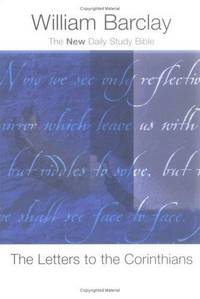 William Barclay
The New Daily Study Bible
Now we see only reflectio
mirror which leave us with
but riddles to solve, but
e shall see face to face.
The Letters to the Corinthians